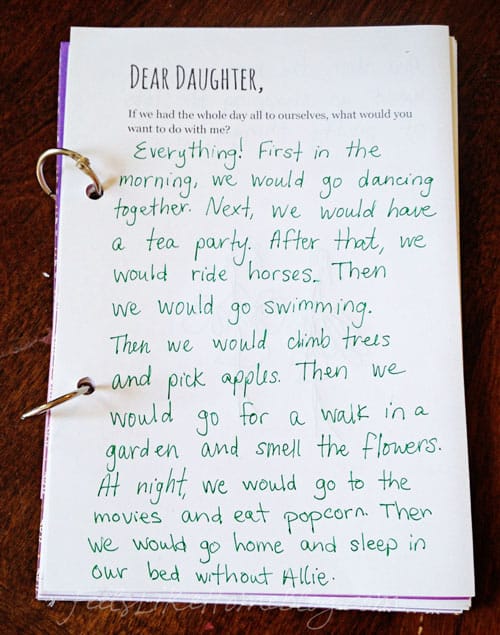 DEAR DAUGHTER,
If we had the whole day all to ourselves, what would you
want to do with me?
Everything! First in the
morning, we would go dancing
together. Next, we would have
a tea party. After that, we
would ride horses. Then
we would go swimming.
Then we would climb trees
and pick apples. Then we
would go for a walk in a
garden and smell the flowers.
At night, we would go to the
movies and eat popcorn. Then
we would go home and sleep in
our bed without Allie.